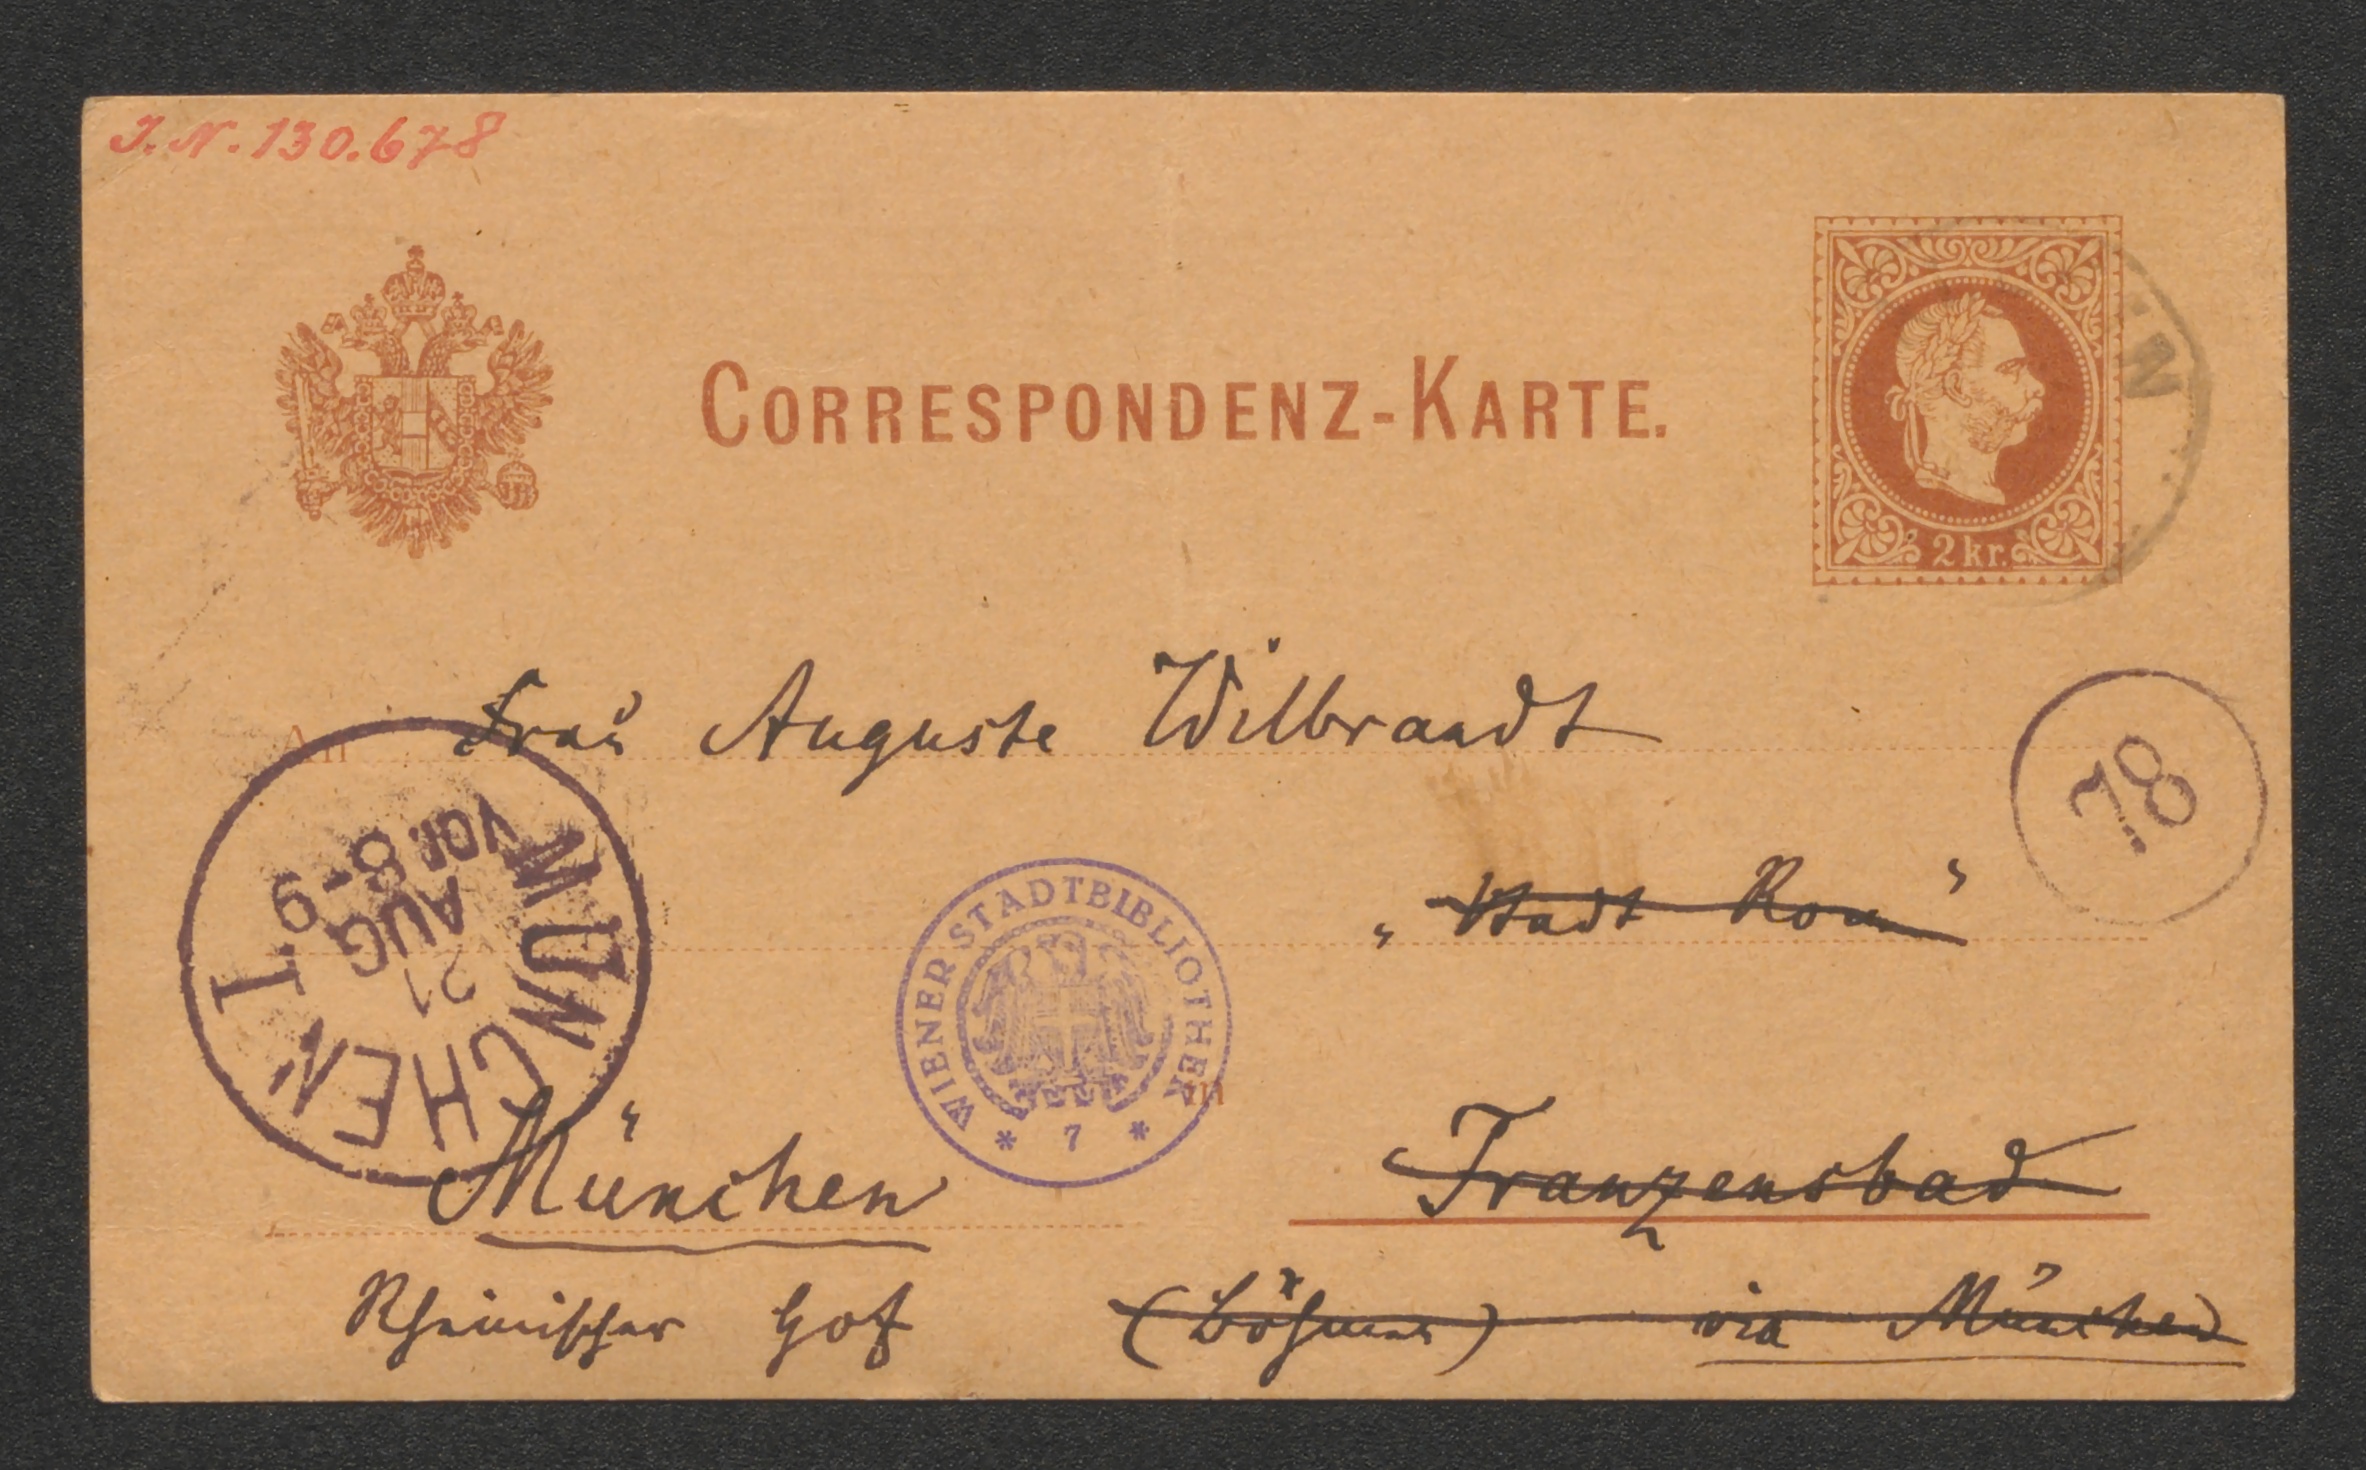 J. N. 130.678
CORRESPONDENZ-KARTE.
2 kr.
An Frau Auguste Wilbrandt
78
„Stadt Rom“
MÜNCHEN I.
21 AUG
VOR. 8-9
WIENER STADTBIBLIOTHEK
* 7 *
in
München Franzensbad
Rheinischer Hof (Böhmen) via München